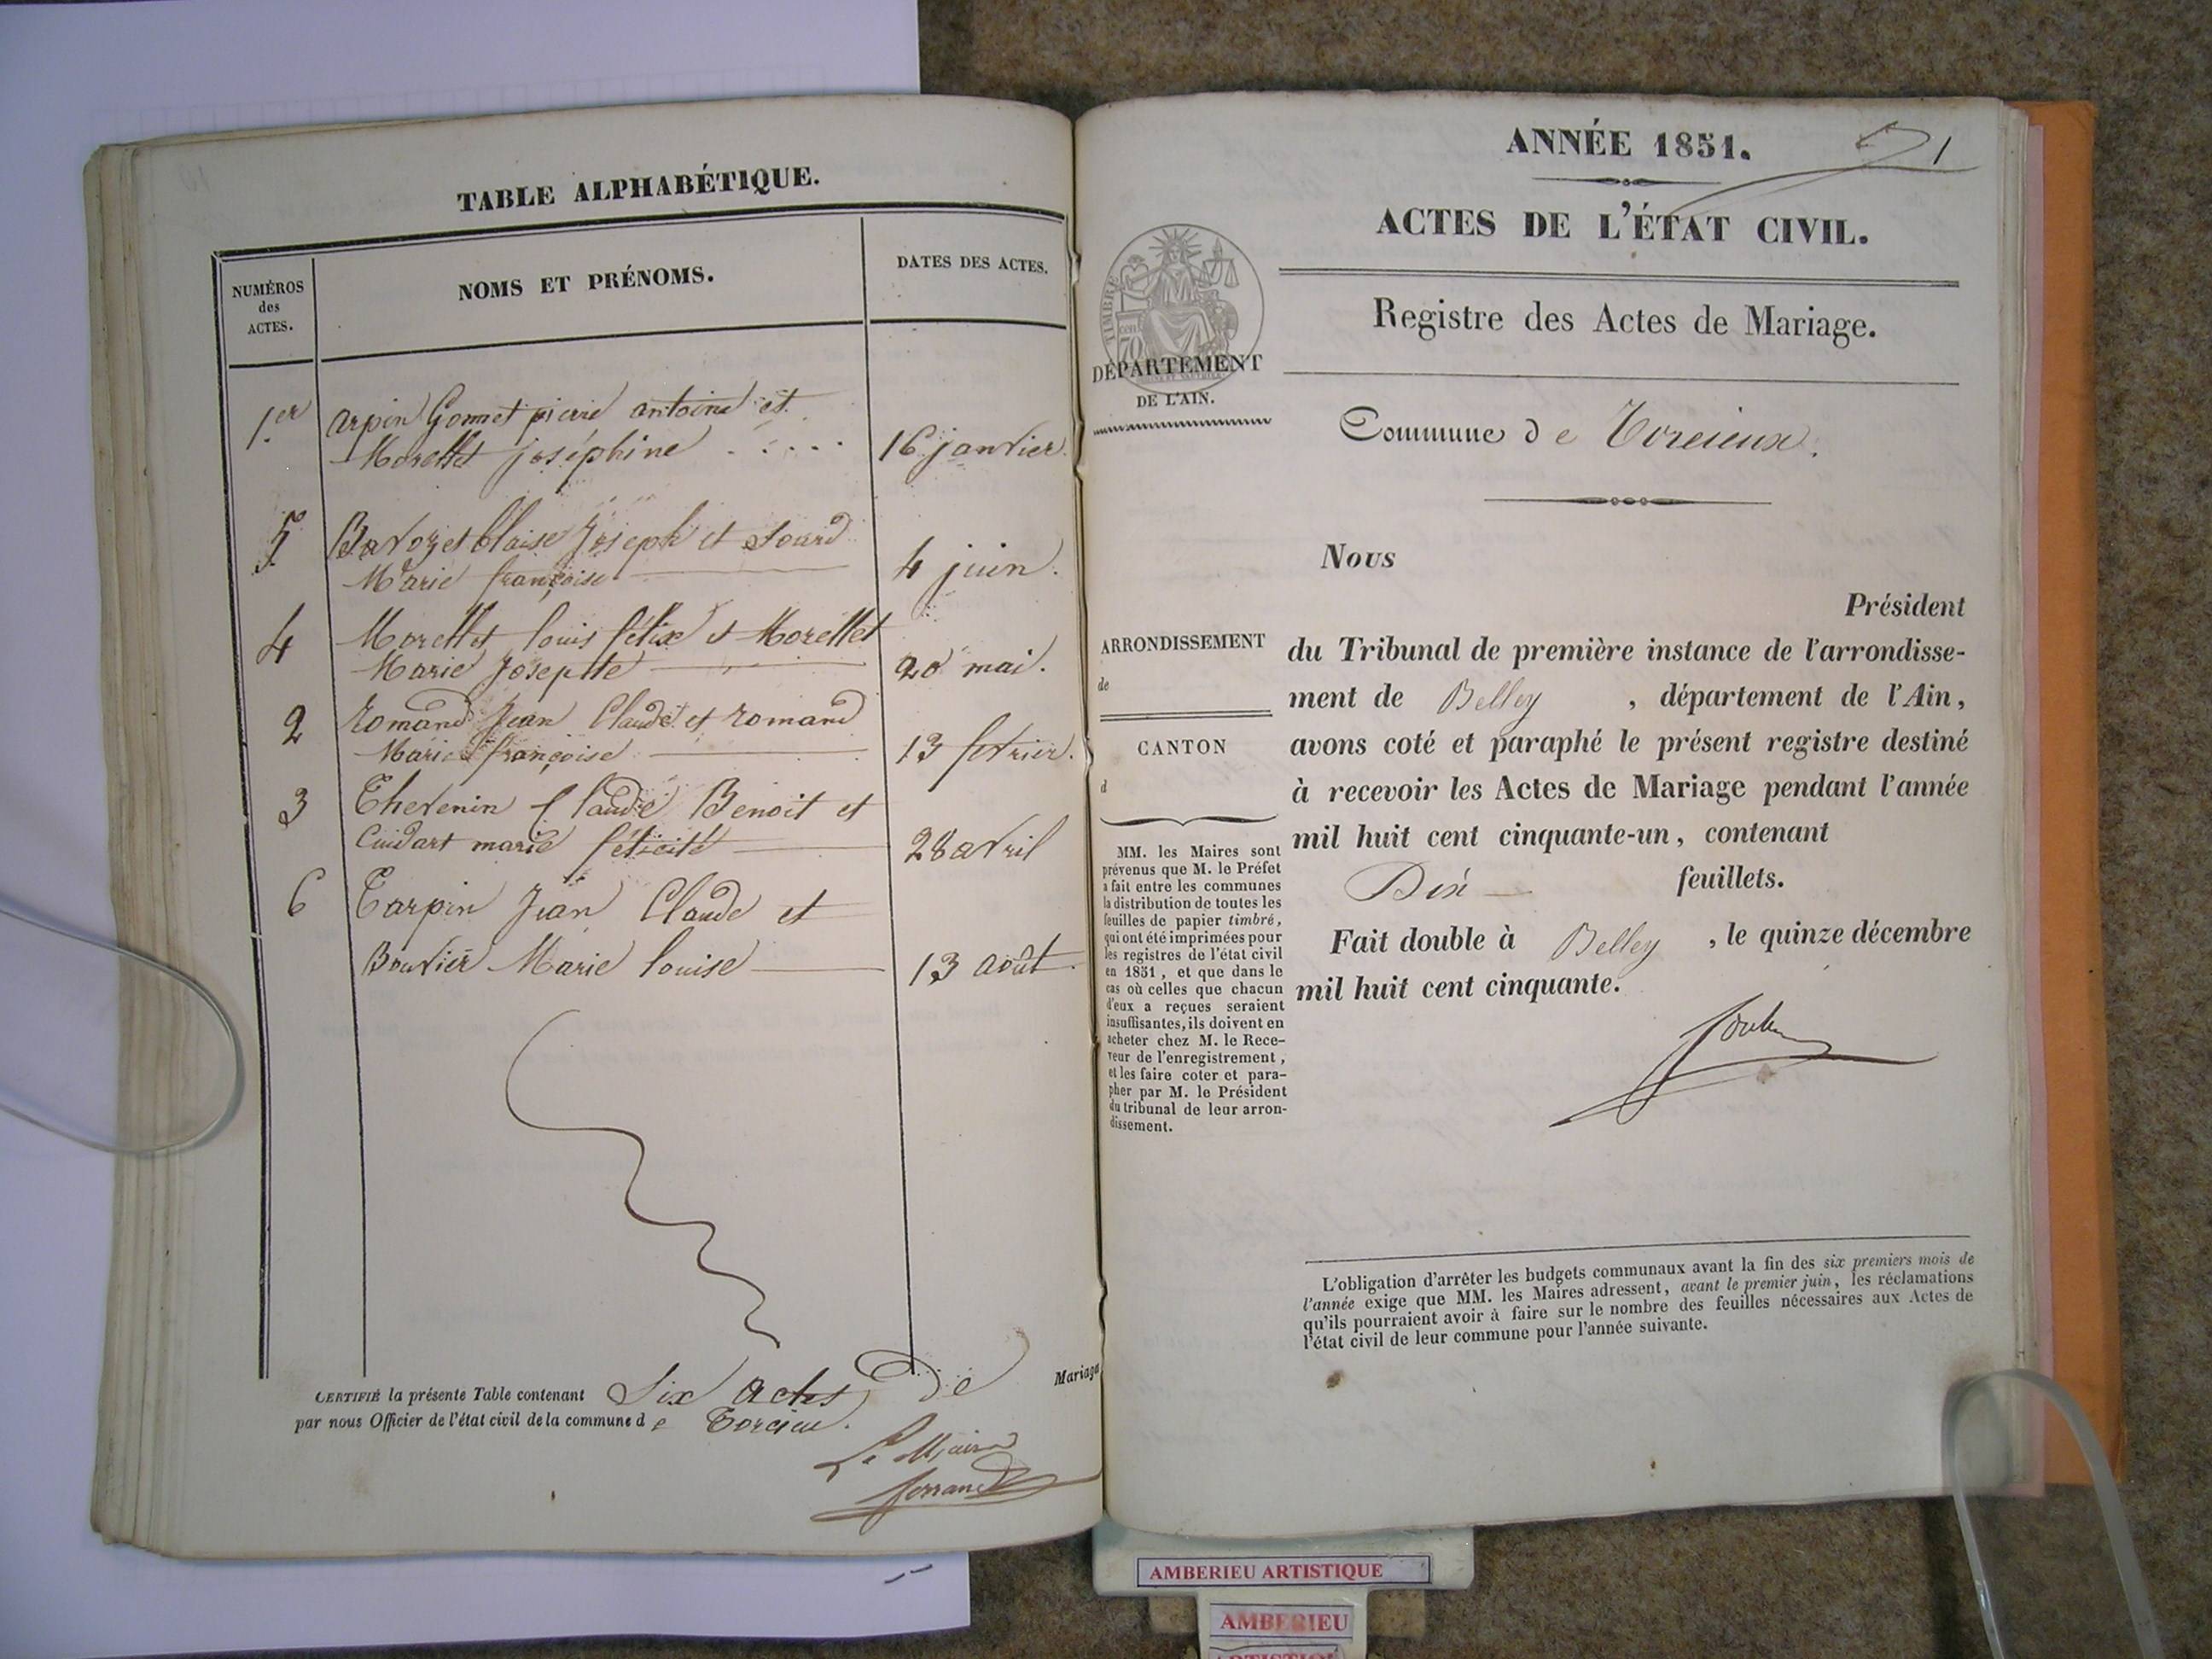 TABLE ALPHABÉTIQUE.
NUMÉROS
des
ACTES.
NOMS ET PRÉNOMS.
DATES DES ACTES.
1er arpin Gonnet pierre antoine et
Morellet joséphine . . . . 16 janvier.
5 Bavozet Claise Joseph et Sourd
Marie françoise 4 juin.
4 Morellet louis félix et Morellet
Marie Josepthe 20 mai.
2 Romand Jean Claude et romand
Marie françoise 13 fevrier.
3 Thevenin Claude Benoit et
Cuidart marie félicité 28 avril
6 Tarpin Jean Claude et
Bouvier Marie louise 13 août.
CERTIFIÉ la présente Table contenant Six actes de Mariage
par nous Officier de l'état civil de la commune de Torcieu.
Le Maire
ferrand
1
ANNÉE 1851.
ACTES DE L'ÉTAT CIVIL.
TIMBRE
70 cen
Registre des Actes de Mariage.
DÉPARTEMENT
DE L'AIN.
Commune de Torcieux.
Nous
Président
ARRONDISSEMENT
de
CANTON
d
du Tribunal de première instance de l'arrondisse-
ment de Belley , département de l'Ain,
avons coté et paraphé le présent registre destiné
à recevoir les Actes de Mariage pendant l'année
mil huit cent cinquante-un, contenant
Dix feuillets.
Fait double à Belley , le quinze décembre
mil huit cent cinquante.
MM. les Maires sont
prévenus que M. le Préfet
a fait entre les communes
la distribution de toutes les
feuilles de papier timbré,
qui ont été imprimées pour
les registres de l'état civil
en 1851, et que dans le
cas où celles que chacun
d'eux a reçues seraient
insuffisantes, ils doivent en
acheter chez M. le Rece-
veur de l'enregistrement,
et les faire coter et para-
pher par M. le Président
du tribunal de leur arron-
dissement.
L'obligation d'arrêter les budgets communaux avant la fin des six premiers mois de
l'année exige que MM. les Maires adressent, avant le premier juin, les réclamations
qu'ils pourraient avoir à faire sur le nombre des feuilles nécessaires aux Actes de
l'état civil de leur commune pour l'année suivante.
AMBERIEU ARTISTIQUE
AMBERIEU
ARTISTIQUE